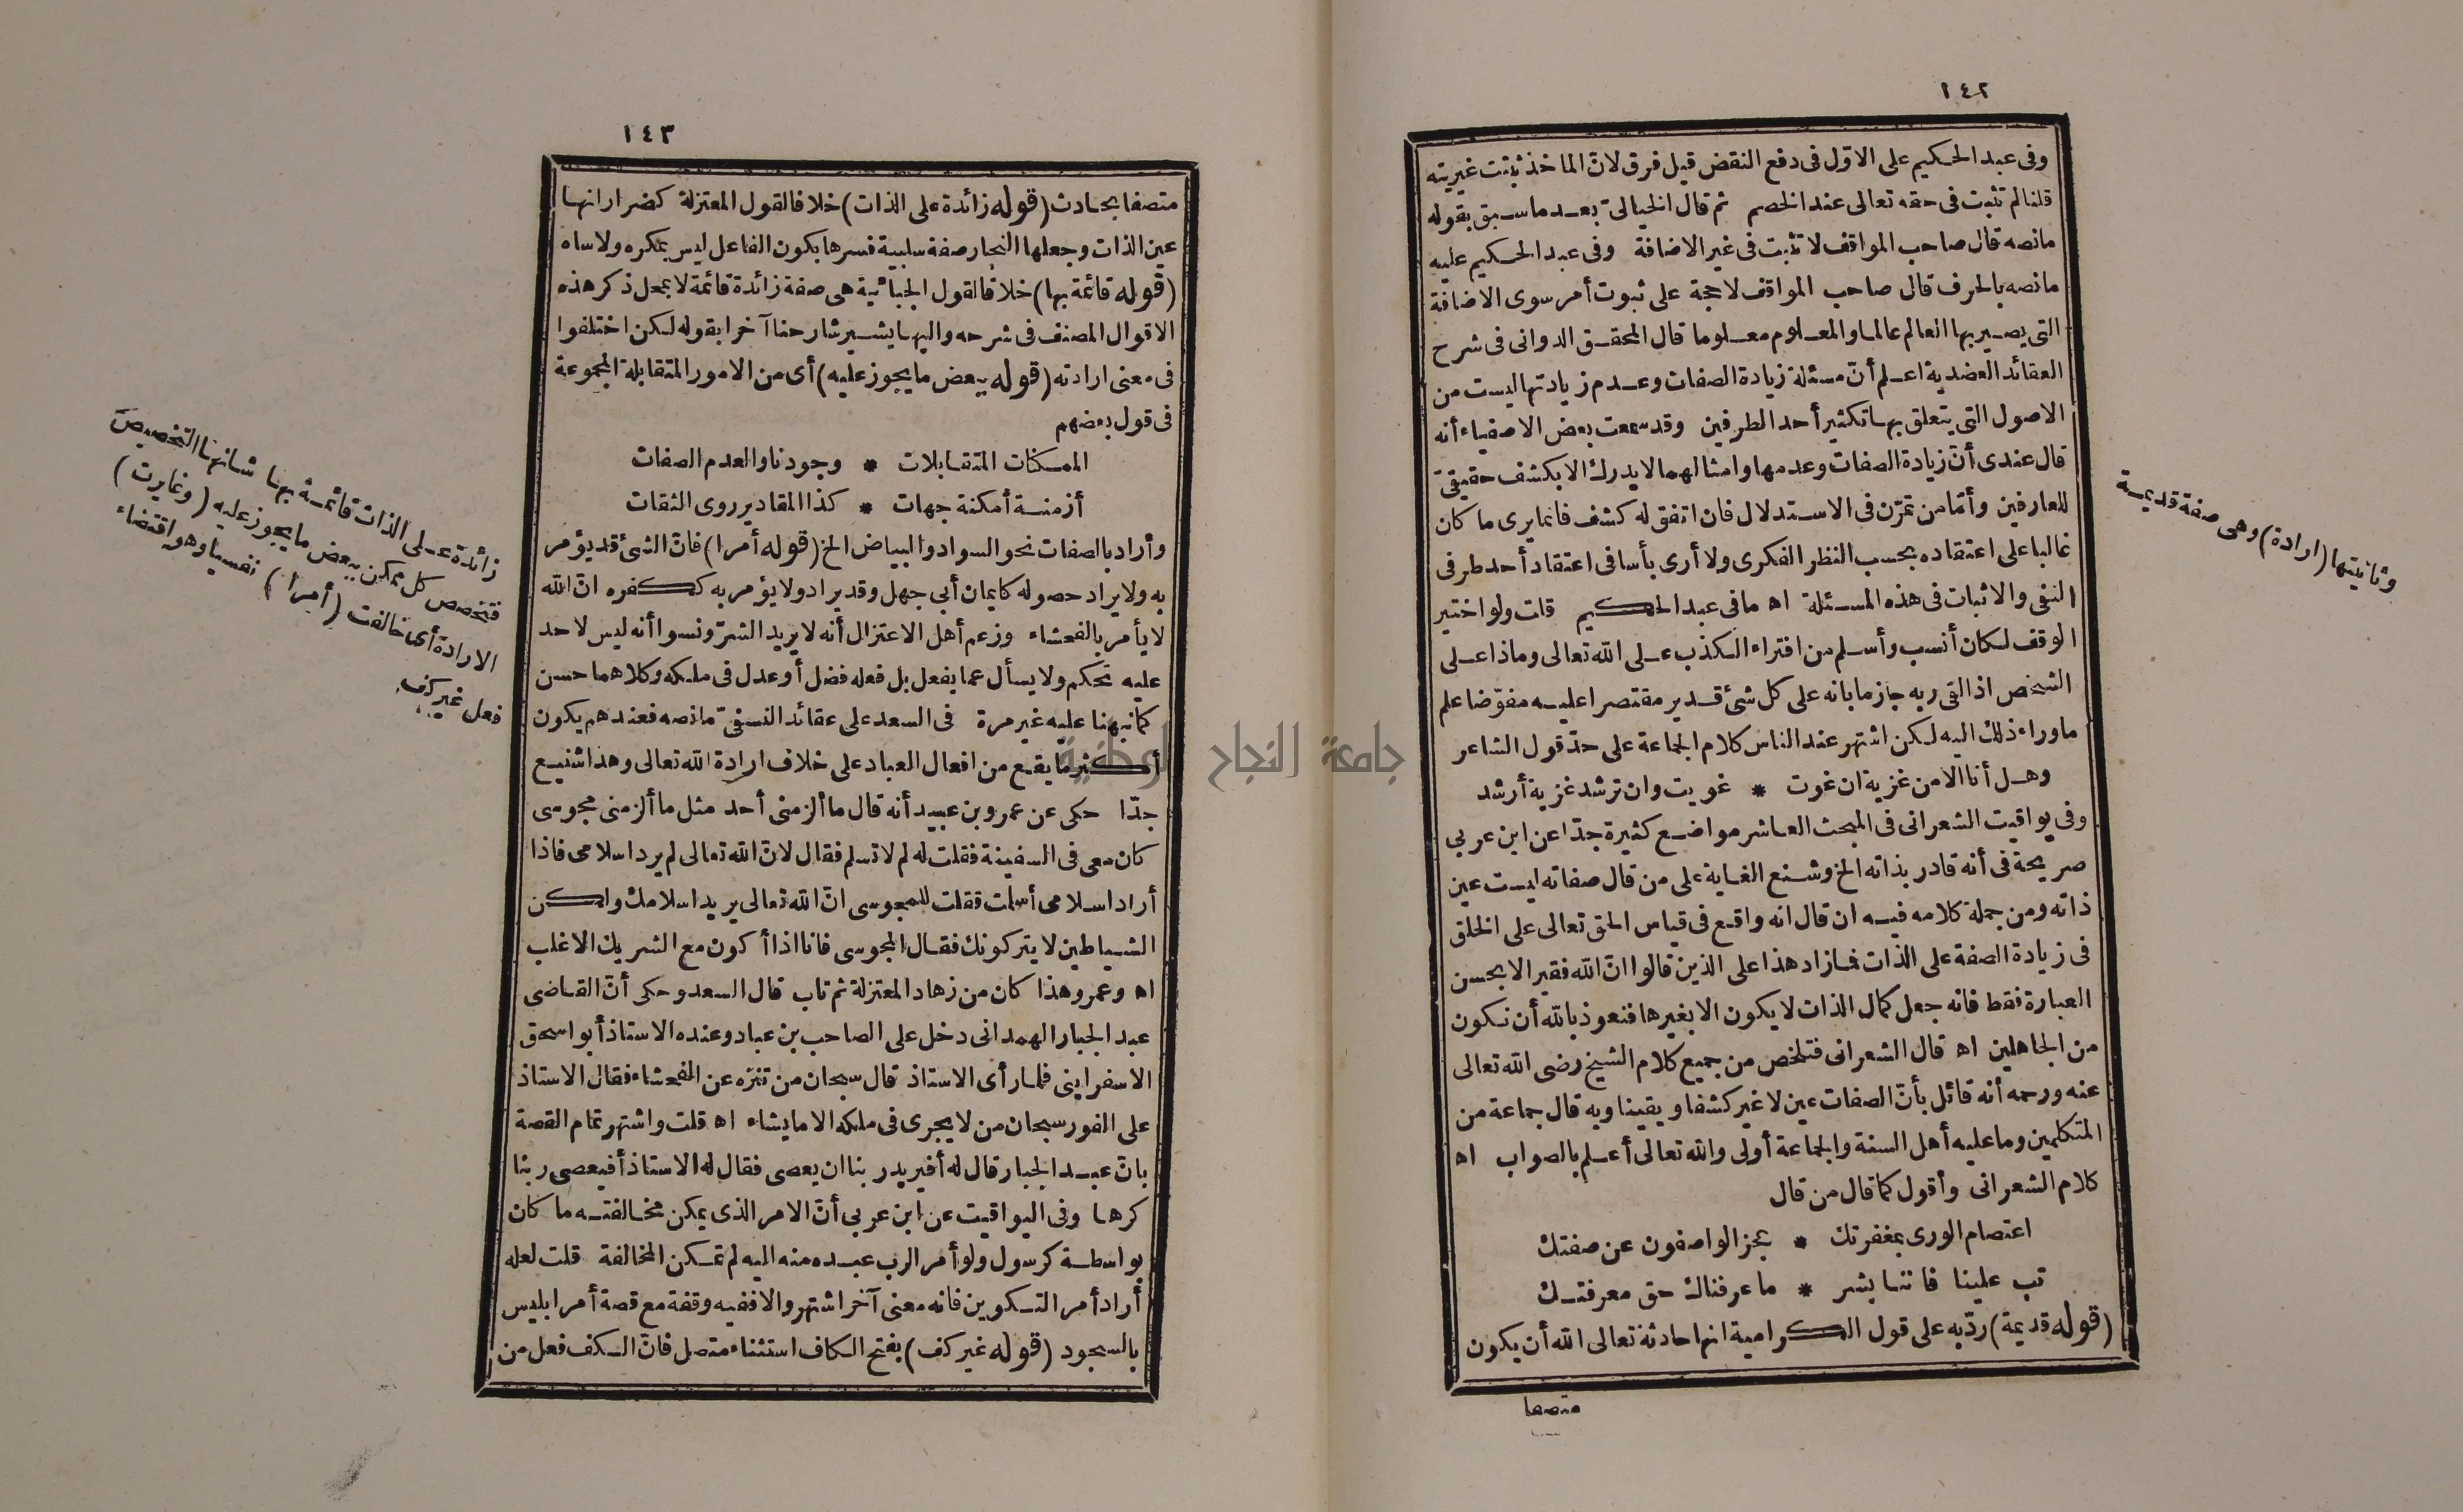 ١٤٢
وفى عبد الحكيم على الاوّل فى دفع النقض قيل فرق لانّ الماخذ ثبتت غيريته
قلنا لم تثبت فى حقه تعالى عند الخصم ثم قال الخيالىّ بعد ما سبق بقوله
مانصه قال صاحب المواقف لا تثبت فى غير الاضافة وفى عبد الحكيم عليه
مانصه بالحرف قال صاحب المواقف لا حجة على ثبوت أمر سوى الاضافة
التى يصير بها العالم عالما والمعلوم معلوما قال المحقق الدوانى فى شرح
العقائد العضدية اعلم أنّ مسئلة زيادة الصفات وعدم زيادتها ليست من
الاصول التى يتعلق بها تكثير أحد الطرفين وقد سمعت بعض الاصفياء أنه
قال عندى أنّ زيادة الصفات وعدمها وامثالهما لا يدرك الا بكشف حقيقىّ
للعارفين وأمّا من تمرّن فى الاستدلال فان اتفق له كشف فانما يرى ما كان
غالبا على اعتقاده بحسب النظر الفكرى ولا أرى بأسا فى اعتقاد أحد طرفى
النفى والاثبات فى هذه المسئلة اه ما فى عبد الحكيم قلت ولو اختير
الوقف لكان أنسب وأسلم من افتراء الكذب على الله تعالى وماذا على
الشخص اذا لقى ربه جازما بانه على كل شئ قدير مقتصرا عليه مفوّضا علم
ما وراء ذلك اليه لكن اشتهر عند الناس كلام الجماعة على حدّ قول الشاعر
وهل أنا الا من غزية ان غوت * غويت وان ترشد غزية أرشد
وفى يواقيت الشعرانى فى المبحث العاشر مواضع كثيرة جدّا عن ابن عربى
صريحة فى أنه قادر بذاته الخ وشنع الغاية على من قال صفاته ليست عين
ذاته ومن جملة كلامه فيه ان قال انه واقع فى قياس الحق تعالى على الخلق
فى زيادة الصفة على الذات فما زاد هذا على الذين قالوا انّ الله فقير الا بحسن
العبارة فقط فانه جعل كمال الذات لا يكون الا بغيرها فنعوذ بالله أن نكون
من الجاهلين اه قال الشعرانى فتلخص من جميع كلام الشيخ رضى الله تعالى
عنه ورحمه أنه قائل بأنّ الصفات عين لا غير كشفا ويقينا وبه قال جماعة من
المتكلمين وما عليه أهل السنة والجماعة أولى والله تعالى أعلم بالصواب اه
كلام الشعرانى وأقول كما قال من قال
اعتصام الورى بمغفرتك * عجز الواصفون عن صفتك
تب علينا فاننا بشر * ما عرفناك حق معرفتك
(قوله قديمة) ردّ به على قول الكرامية انها حادثة تعالى الله أن يكون
متصفا
وثانيتها (ارادة) وهى صفة قديمة
١٤٣
متصفا بحادث (قوله زائدة على الذات) خلافا لقول المعتزلة كضرار انها
عين الذات وجعلها النجار صفة سلبية فسرها بكون الفاعل ليس بمكره ولا ساه
(قوله قائمة بها) خلافا لقول الجبائية هى صفة زائدة قائمة لا بمحل ذكر هذه
الاقوال المصنف فى شرحه واليها يشير شارحنا آخرا بقوله لكن اختلفوا
فى معنى ارادته (قوله ببعض ما يجوز عليه) أى من الامور المتقابلة المجموعة
فى قول بعضهم
الممكنات المتقابلات * وجودنا والعدم الصفات
أزمنة أمكنة جهات * كذا المقادير روى الثقات
وأراد بالصفات نحو السواد والبياض الخ (قوله أمرا) فانّ الشئ قد يؤمر
به ولا يراد حصوله كايمان أبى جهل وقد يراد ولا يؤمر به ككفره انّ الله
لا يأمر بالفحشاء وزعم أهل الاعتزال أنه لا يريد الشرّ ونسوا أنه ليس لاحد
عليه تحكم ولا يسأل عما يفعل بل فعله فضل أو عدل فى ملكه وكلاهما حسن
كما نبهنا عليه غير مرة فى السعد على عقائد النسفىّ مانصه فعندهم يكون
أكثر ما يقع من افعال العباد على خلاف ارادة الله تعالى وهذا شنيع
جدّا حكى عن عمرو بن عبيد أنه قال ما ألزمنى أحد مثل ما ألزمنى مجوسى
كان معى فى السفينة فقلت له لم لا تسلم فقال لانّ الله تعالى لم يرد اسلامى فاذا
أراد اسلامى أسلمت فقلت للمجوسى انّ الله تعالى يريد اسلامك ولكن
الشياطين لا يتركونك فقال المجوسى فانا اذا أكون مع الشريك الاغلب
اه وعمرو هذا كان من زهاد المعتزلة ثم تاب قال السعد وحكى أنّ القاضى
عبد الجبار الهمدانى دخل على الصاحب بن عباد وعنده الاستاذ أبو اسحق
الاسفراينى فلما رأى الاستاذ قال سبحان من تنزه عن الفحشاء فقال الاستاذ
على الفور سبحان من لا يجرى فى ملكه الا ما يشاء اه قلت واشتهر تمام القصة
بانّ عبد الجبار قال له أفيريد ربنا ان يعصى فقال له الاستاذ أفيعصى ربنا
كرها وفى اليواقيت عن ابن عربى أنّ الامر الذى يمكن مخالفته ما كان
بواسطة كرسول ولو أمر الرب عبده منه اليه لم تمكن المخالفة قلت لعله
أراد أمر التكوين فانه معنى آخر اشتهر والا ففيه وقفة مع قصة أمر ابليس
بالسجود (قوله غير كف) بفتح الكاف استثناء متصل فانّ الكف فعل من
زائدة على الذات قائمة بها شانها التخصيص
فتخصص كل ممكن ببعض ما يجوز عليه (وغايرت)
الارادة أى خالفت (أمرا) نفسيا وهو اقتضاء
فعل غير كف
جامعة النجاح الوطنية